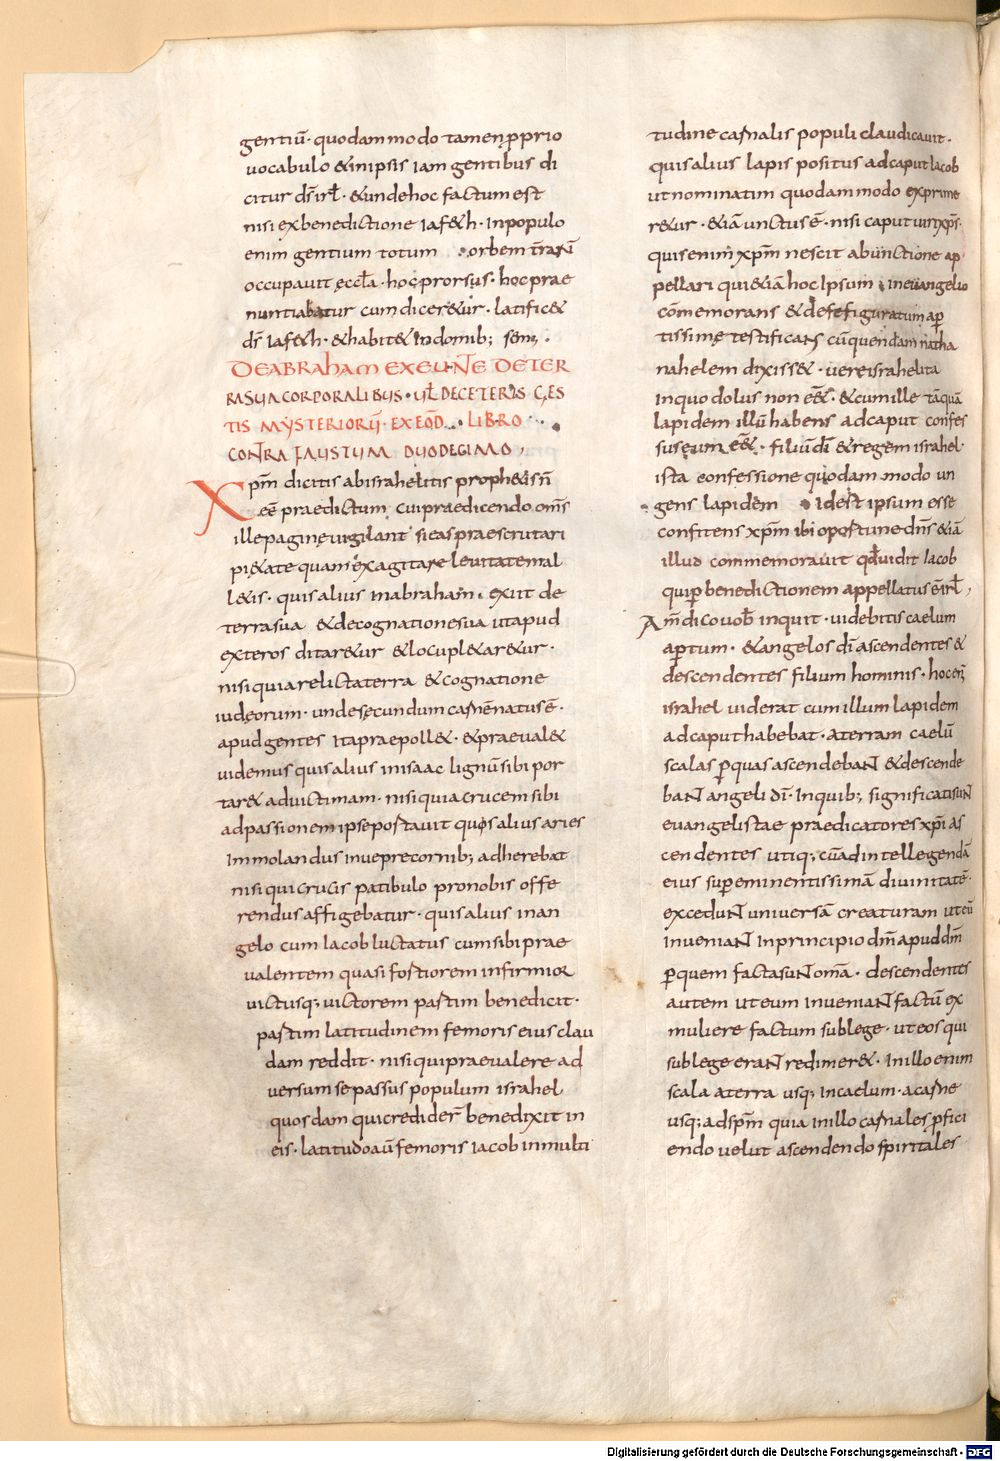 gentiū· quodammodo tamen ꝓprio
uocabulo &inipsis iam gentibus di
citur d̄s irl̄· &unde hoc factum est
nisi exbenedictione iaf&h· Inpopulo
enim gentium totum orbem t̄raN̄
occupauit eccl̄a· hoc prorsus· hoc prae
nuntiabatur cum dicer&ur· latific&
d̄s Iaf&h· &habit& Indomib; sem,
DEABRAHAM EXEUNTE DETER
RASUA CORPORALIBUS· UL̄ DECETERIS GES
TIS MYSTERIORŪ· EXEOD̄· LIBRO
CONTRA FAUSTUM DUODECIMO,
Xp̄m dicitis abisrahelitis proph&is n̄
eē praedictum cui praedicendo om̄s
ille pagine uigilant si eas praescrutari
pi&ate quam exagitare leuitate mal
l&is· quis alius inabraham· exiit de
terra sua &decognatione sua ut apud
exteros ditar&ur &locupl&ar&ur·
nisi quia relicta terra &cognatione
iudęorum· unde secundum carnē natus ē·
apud gentes ita praepoll&· &praeual&
uidemus quis alius inisaac lignū sibi por
tar& aduictimam· nisi quia crucem sibi
adpassionem ipse portauit quis alius aries
Immolandus inueprecornib; adherebat
nisi qui crucis patibulo pronobis offe
rendus affigebatur· quis alius inan
gelo cum Iacob luctatus cum sibi prae
ualentem quasi fortiorem infirmior
uictusq; uictorem partim benedicit·
partim latitudinem femoris eius clau
dam reddit· nisi qui praeualere ad
uersum se passus populum israhel
quosdam qui credider̄ benedixit in
eis· latitudo aū femoris iacob inmulti
tudine carnalis populi claudicauit·
quis alius lapis positus adcaput Iacob
ut nominatim quodammodo exprime
r&ur· &iā unctus ē· nisi caput uiri xp̄s·
quis enim xp̄m nescit abunctione ap
pellari qui &iā hoc Ipsum ineuangelio
cōmemorans &de se figuratum ap̄
tissime testificans cū quendam natha
nahelem dixiss&· uere israhelita
inquo dolus non e͞e&· &cum ille tāquā
lapidem illū habens adcaput confes
sus eum e͞e&· filiū d̄i &regem israhel·
ista confessione quodammodo un
gens lapidem Idest ipsum esse
confitens xp̄m ibi oportune dn̄s &iā
illud commemorauit qđ uidit Iacob
qui ꝑ benedictionem appellatus ē irl̄,
Am̄ dico uob̄ inquit· uidebitis caelum
aꝑtum· &angelos d̄i ascendentes &
descendentes filium hominis· hoc en̄
israhel uiderat cum illum lapidem
adcaput habebat· aterram caelū
scalas ꝑ quas ascendebaN̄ &descende
baN̄ angeli d̄i· Inquib; significati suN̄
euangelistae praedicatores xp̄i as
cendentes utiq; cū ad intellegendā
eius suꝑeminentissimā diuinitatē·
exceduN̄ uniuersā creaturam ut eū
InueniaN̄ Inprincipio dm̄ apud dm̄
ꝑ quem facta suN̄ om̄a· descendentes
autem ut eum InueniaN̄ factū ex
muliere factum sublege· ut eos qui
sublege eraN̄ redimer&· Inillo enim
scala aterra usq; Incaelum· acarne
usq; adsp̄m quia inillo carnales ꝓfici
endo uelut ascendendo spiritales
Digitalisierung gefördert durch die Deutsche Forschungsgemeinschaft - DFG